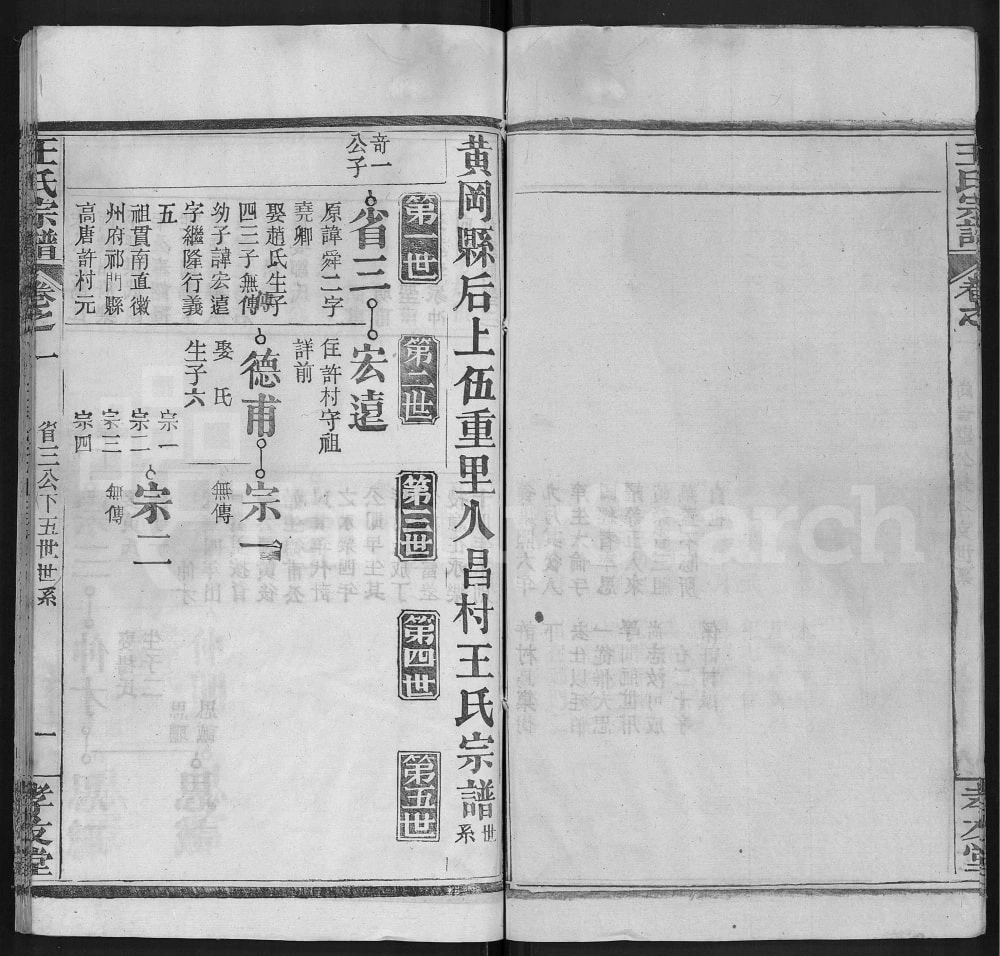 王氏宗譜
卷之
黄岡縣后上伍重里八昌村王氏宗譜世系
第一世
第二世
第三世
第四世
第五世
奇一
公子
省三
原諱舜二字
堯卿
娶趙氏生子
四三子無傳
幼子諱宏遠
字繼隆行義
五
祖貫南直徽
州府祁門縣
高唐許村元
宏遠
住許村守祖
詳前
傳
德甫
娶 氏
生子六
宗一
宗二
宗三
宗四
宗一
無傳
宗二
無傳
王氏宗譜
卷之一
省三公下五世世系
一
孝友堂